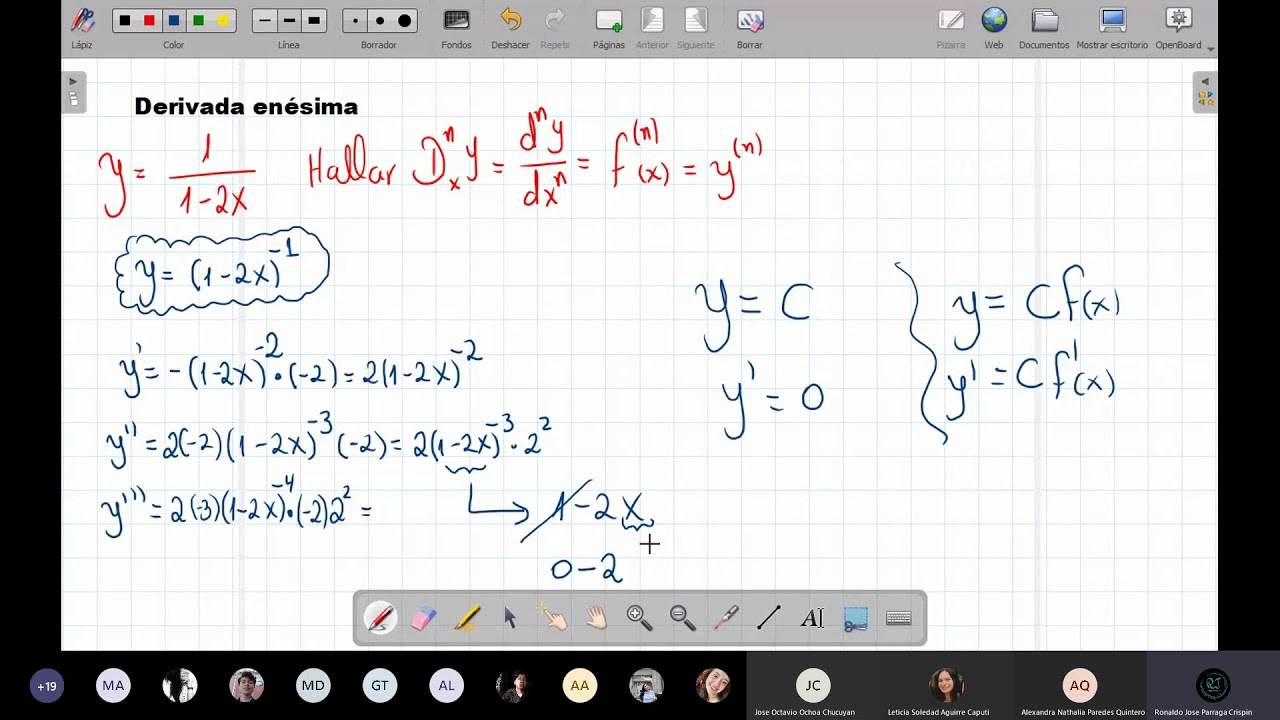 Lápiz Color Línea Borrador Fondos Deshacer Repetir Páginas Anterior Siguiente Borrar Pizarra Web Documentos Mostrar escritorio OpenBoard
Derivada enésima
y = 1/(1-2x) Hallar Dₓⁿy = dⁿy/dxⁿ = f⁽ⁿ⁾(x) = y⁽ⁿ⁾
y = (1-2x)⁻¹
y' = -(1-2x)⁻²·(-2) = 2(1-2x)⁻²
y'' = 2(-2)(1-2x)⁻³(-2) = 2(1-2x)⁻³·2²
y''' = 2(-3)(1-2x)⁻⁴·(-2)2² =
1-2x
0-2
y = C
y' = 0
y = Cf(x)
y' = Cf'(x)
AI
+19 MA MD GT AL AA JC AQ RJ
Jose Octavio Ochoa Chucuyan Leticia Soledad Aguirre Caputi Alexandra Nathalia Paredes Quintero Ronaldo Jose Parraga Crispin